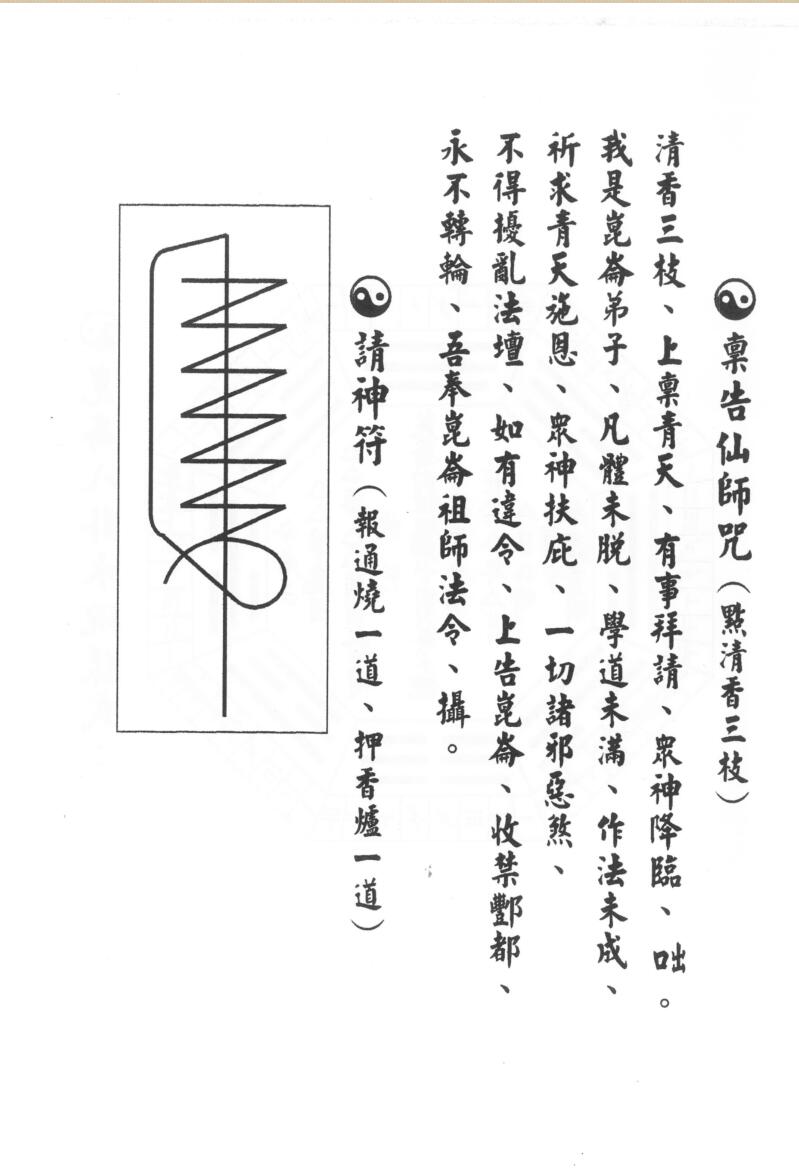 稟告仙師咒（點清香三枝）
清香三枝、上稟青天、有事拜請、眾神降臨、咄。
我是崑崙弟子、凡體未脫、學道未滿、作法未成、
祈求青天施恩、眾神扶庇、一切諸邪惡煞、
不得擾亂法壇、如有違令、上告崑崙、收禁酆都、
永不轉輪、吾奉崑崙祖師法令、攝。
請神符（報通燒一道、押香爐一道）